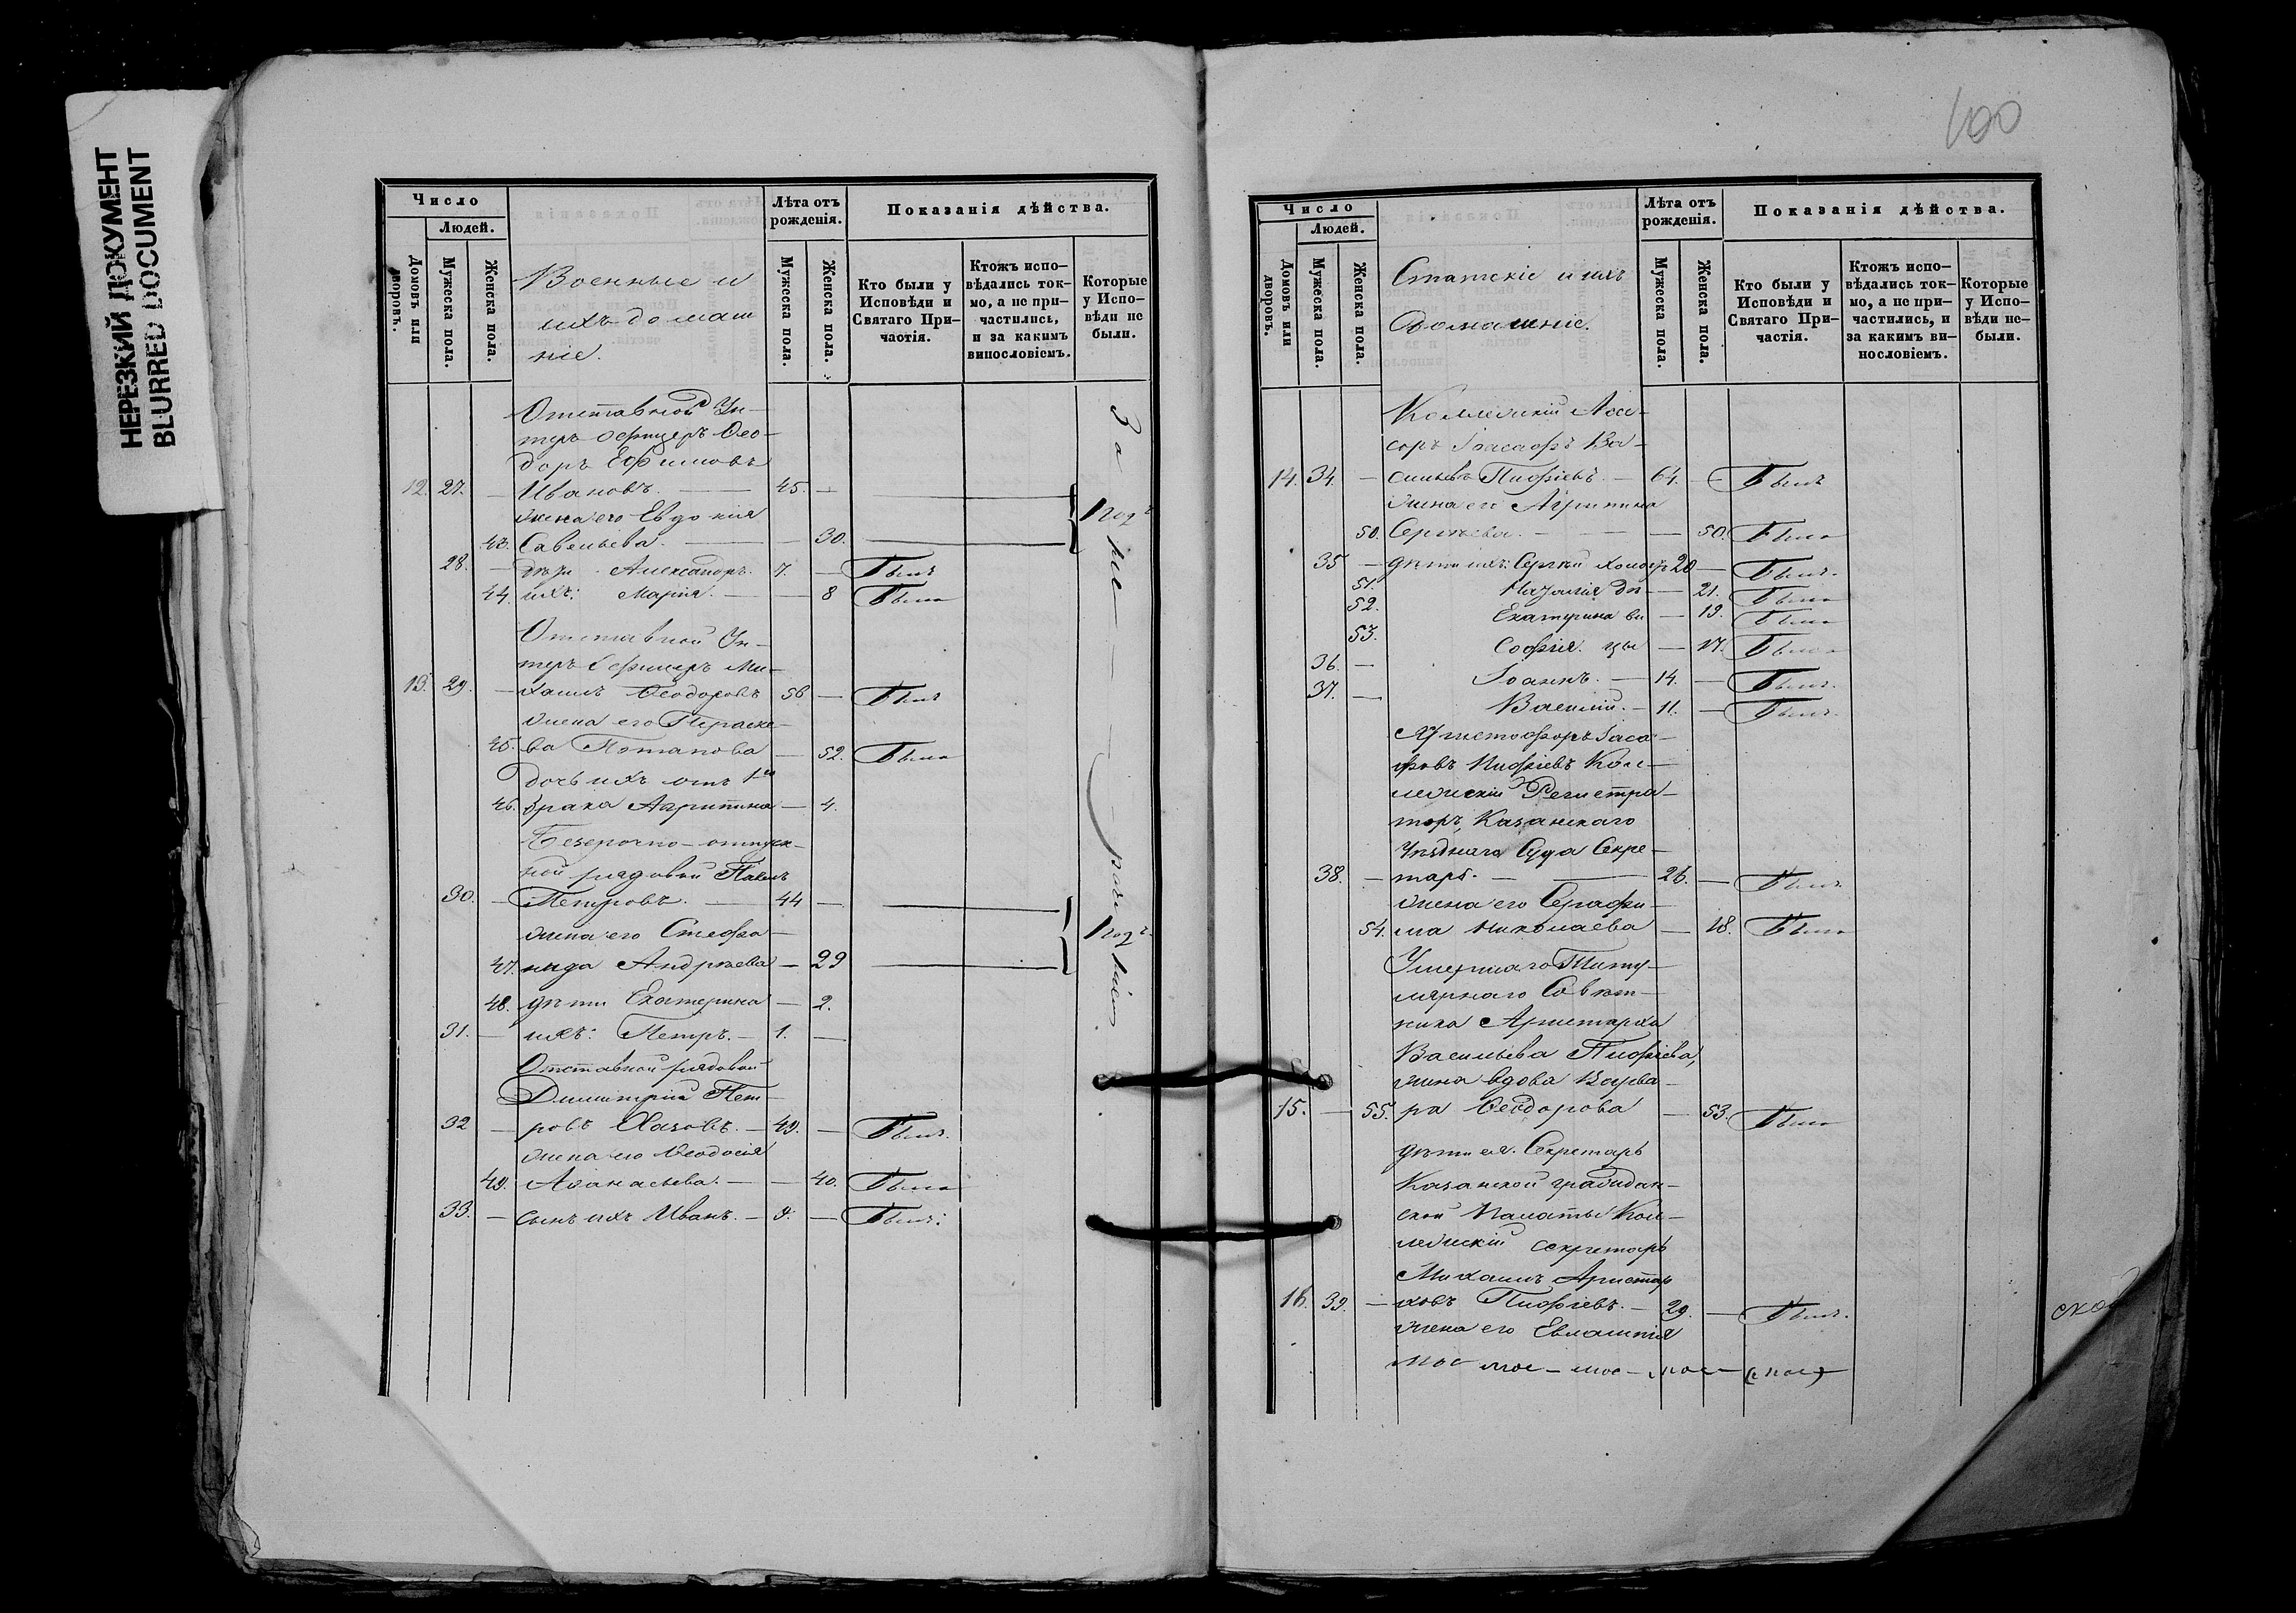 НЕРЕЗКИЙ ДОКУМЕНТ
BLURRED DOCUMENT
Число
Людей.
Домовъ или дворовъ.
Мужеска пола.
Женска пола.
Военные и
ихъ домаш
ніе.
Лѣта отъ рожденія.
Мужеска пола.
Женска пола.
Показанія дѣйства.
Кто были у Исповѣди и Святаго Причастія.
Ктожъ исповѣдались токмо, а не причастились, и за какимъ винословіемъ.
Которые у Исповѣди не были.
Отставной Ун-
теръ офицеръ Ѳео-
доръ Ефимовъ
12. 27. — Ивановъ. — 45. —
жена его Евдокія
43. Савельева. — — 30.
28. — дѣти Александръ. 7. — Былъ
44. ихъ: Марія. — — 8 Была
Отставной Ун-
теръ Офицеръ Ми-
13. 29. — хаилъ Ѳеодоровъ 56 — Былъ
жена его Параске-
45. ва Потапова — 52. Была
дочь ихъ отъ 1го
46. брака Агрипина — 4.
Безсрочно-отпуск-
ной рядовой Павелъ
30. — Петровъ. — 44 —
жена его Стефа-
47. нида Андреева — 29
48. дѣти Екатерина — 2.
31. — ихъ: Петръ. — 1. —
Отставной рядовой
Димитрій Пет-
32 — ровъ Хазовъ. — 49. — Былъ.
жена его Ѳеодосія
49. Аѳанасьева. — — 40. Была
33. — сынъ ихъ Иванъ. — 9. — Былъ:
За не
раче
ніем
100
Число
Людей.
Домовъ или дворовъ.
Мужеска пола.
Женска пола.
Статскіе и ихъ
домашніе.
Лѣта отъ рожденія.
Мужеска пола.
Женска пола.
Показанія дѣйства.
Кто были у Исповѣди и Святаго Причастія.
Ктожъ исповѣдались токмо, а не причастились, и за какимъ винословіемъ.
Которые у Исповѣди небыли.
Коллежскій Ассе-
соръ Іоасафъ Ва-
14. 34. — сильевъ Пифіевъ. — 64. — Былъ
жена его Агрипина
50. Сергѣева. — — 50. Была
35 — дѣти ихъ: Сергѣй холост 20 — Былъ.
51. Наталія дѣ — 21. Была
52. Екатерина ви — 19. Была
53. Софія. цы — 17. Была
36. — Іоаннъ. — 14. — Былъ.
37. — Василій. — 11. — Былъ.
Христофоръ Іаса-
фовъ Пифіевъ Кол-
лежскій Регистра-
торъ, Казанскаго
Уѣзднаго Суда Секре-
38. — тарь. — 26. — Былъ.
жена его Серафи-
54. ма Николаева — 18. Была
Умершаго Титу-
лярнаго Совѣт-
ника Аристарха
Васильева Пифіева,
жена вдова Варва-
15. — 55. ра Ѳеодорова — 53. Была
дѣти ея. Секретарь
Казанской граждан-
ской Палаты Кол-
лежскій секретарь
Михаилъ Аристар
16. 39. — ховъ Пифіевъ. — 29. — Былъ.
жена его Евлампія
ской